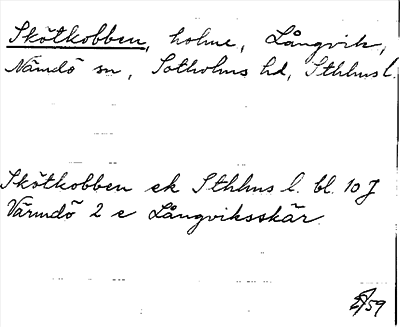 Skötkobben, holme, Långvik,
Nämdö sn, Sotholms hd, Sthlms l.
Skötkobben ek Sthlms l. bl. 10 J
Värmdö 2 e Långviksskär.